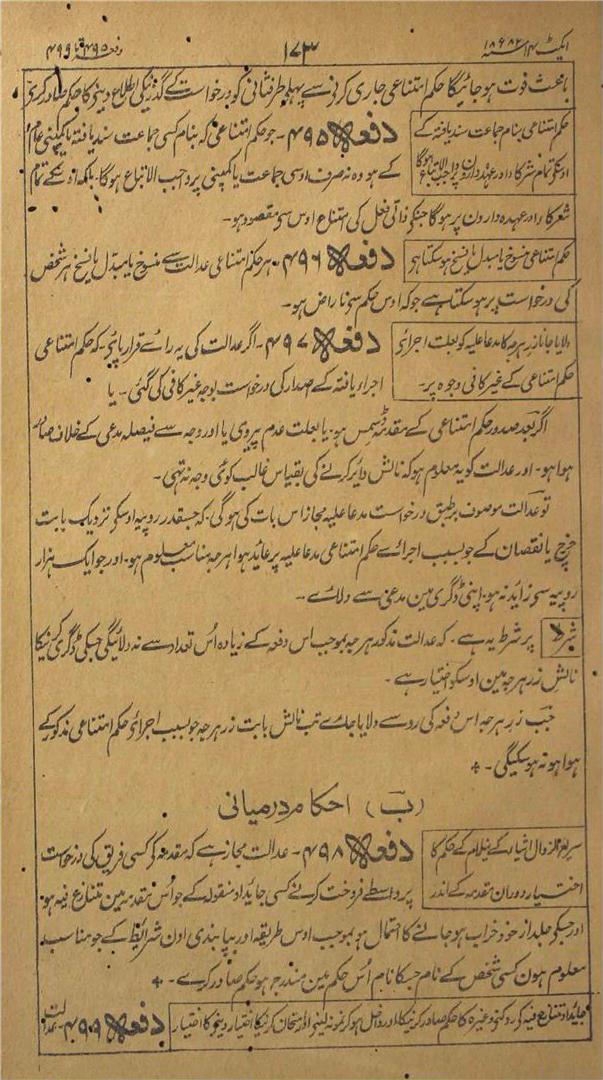 ایکٹ ۱۴ سنہ ۱۸۸۲ ۱۷۳ دفعہ ۴۹۵ تا ۴۹۹
باعث فوت ہو جائیگا حکم امتناعی جاری کرنی سے پہلی طرفثانی کو درخواست کے گذرنیکی اطلاع دینی کا حکم صادر کری
حکم امتناعی بنام جماعت سند یافتہ کے
اوسکی تمام شرکا اور عہدہ داروں پر واجب الاتباع ہوگا
دفعہ ۴۹۵۔ جو حکم امتناعی کہ بنام کسی جماعت سند یافتہ یا کمپنی عام
کے ہو وہ نہ صرف اوسی جماعت یا کمپنی پر واجب الاتباع ہوگا۔ بلکہ اوسکے تمام
شرکا اور عہدہ دارون پر ہوگا جنکی ذاتی فعل کی امتناع اوس سی مقصود ہو۔
حکم امتناعی منسوخ یا مبدل یا فسخ ہو سکتا ہی
دفعہ ۴۹۶۔ ہر حکم امتناعی عدالت سے منسوخ یا مبدل یا فسخ ہر شخص
کی درخواست پر ہو سکتا ہے جو کہ اوس حکم سی ناراض ہو۔
دلایا جانا زر ہرجہ کا مدعا علیہ کو بعلت اجرائ
حکم امتناعی کے غیر کافی وجوہ پر۔
دفعہ ۴۹۷۔ اگر عدالت کی یہ رائے قرار پائی۔ کہ حکم امتناعی
اجرا یافتہ کے اصدار کی درخواست بوجہ غیر کافی کی گئی۔ یا
اگر بعد صدور حکم امتناعی کے مقدمہ ڈسمس ہو۔ یا بعلت عدم پیروی یا اور وجہ سے فیصلہ مدعی کے خلاف صادر
ہوا ہو۔ اور عدالت کو یہ معلوم ہو کہ نالش دائر کرنے کی بقیاس غالب کوئی وجہ نہ تہی۔
تو عدالت موصوف برطبق درخواست مدعا علیہ مجاز اس بات کی ہوگی۔ کہ جسقدر روپیہ اوسکی نزدیک بابت
خرچ یا نقصان کے جو بسبب اجرائے حکم امتناعی مدعا علیہ پر عائد ہوا ہرجہ مناسب معلوم ہو۔ اور جو ایک ہزار
روپیہ سی زائد نہ ہو۔ اپنی ڈگری مین مدعی سے دلائے۔
شرط پر شرط یہ ہے۔ کہ عدالت مذکور ہرجہ بموجب اس دفعہ کے زیادہ اُس تعداد سے نہ دلائیگی جسکی ڈگری کرنیکا
نالش زر ہرجہ مین اوسکو اختیار ہے۔
جب زر ہرجہ اس دفعہ کی رو سے دلایا جاے تب نالش بابت زر ہرجہ جو بسبب اجرائ حکم امتناعی مذکور کے
ہوا ہو نہ ہو سکیگی۔
(ب) احکام درمیانی
سریع الزوال اشیاء کے نیلام کے حکم کا
اختیار دوران مقدمہ کے اندر
دفعہ ۴۹۸۔ عدالت مجاز ہے کہ مقدمہ کی کسی فریق کی درخواست
پر واسطے فروخت کرنے کسی جایداد منقولہ کے جو اُس مقدمہ مین متنازع فیہ ہو
اور جسکی جلد از خود خراب ہو جانے کا احتمال ہو بموجب اوس طریقہ اور بپابندی اون شرائط کے جو مناسب
معلوم ہون کسی شخص کے نام جسکا نام اُس حکم مین مندرج ہو حکم صادر کرے۔
جائداد متنازع فیہ کی روکنی وغیرہ کا حکم صادر کرنیکا اور داخل ہو کر نمونہ لینی اور امتحان کرنیکا اختیار دینی کا اختیار
دفعہ ۴۹۹۔ عدالت